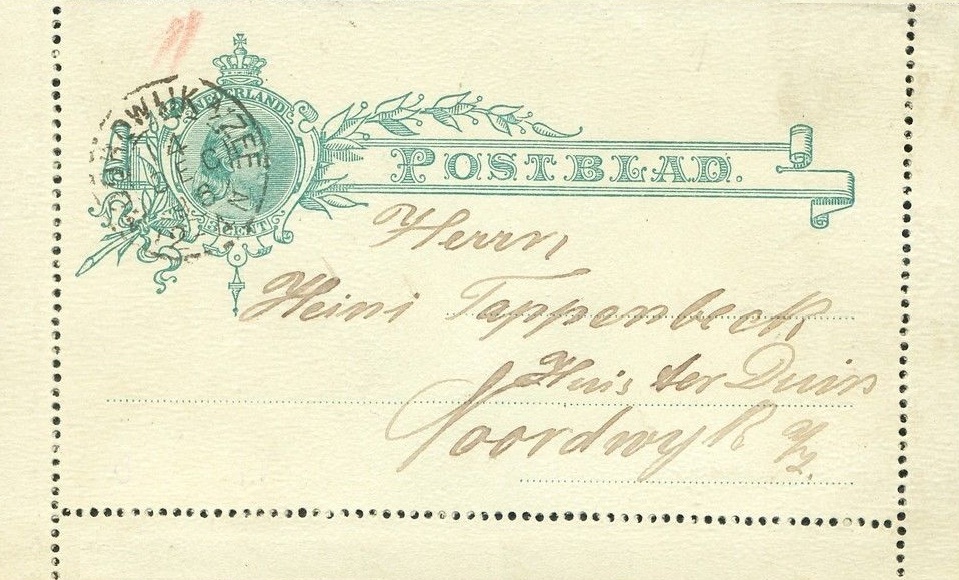 NEDERLAND
POSTBLAD.
CENT
Herrn
Heini Tappenbeck
Huis ter Duin
Noordwyk a/z.